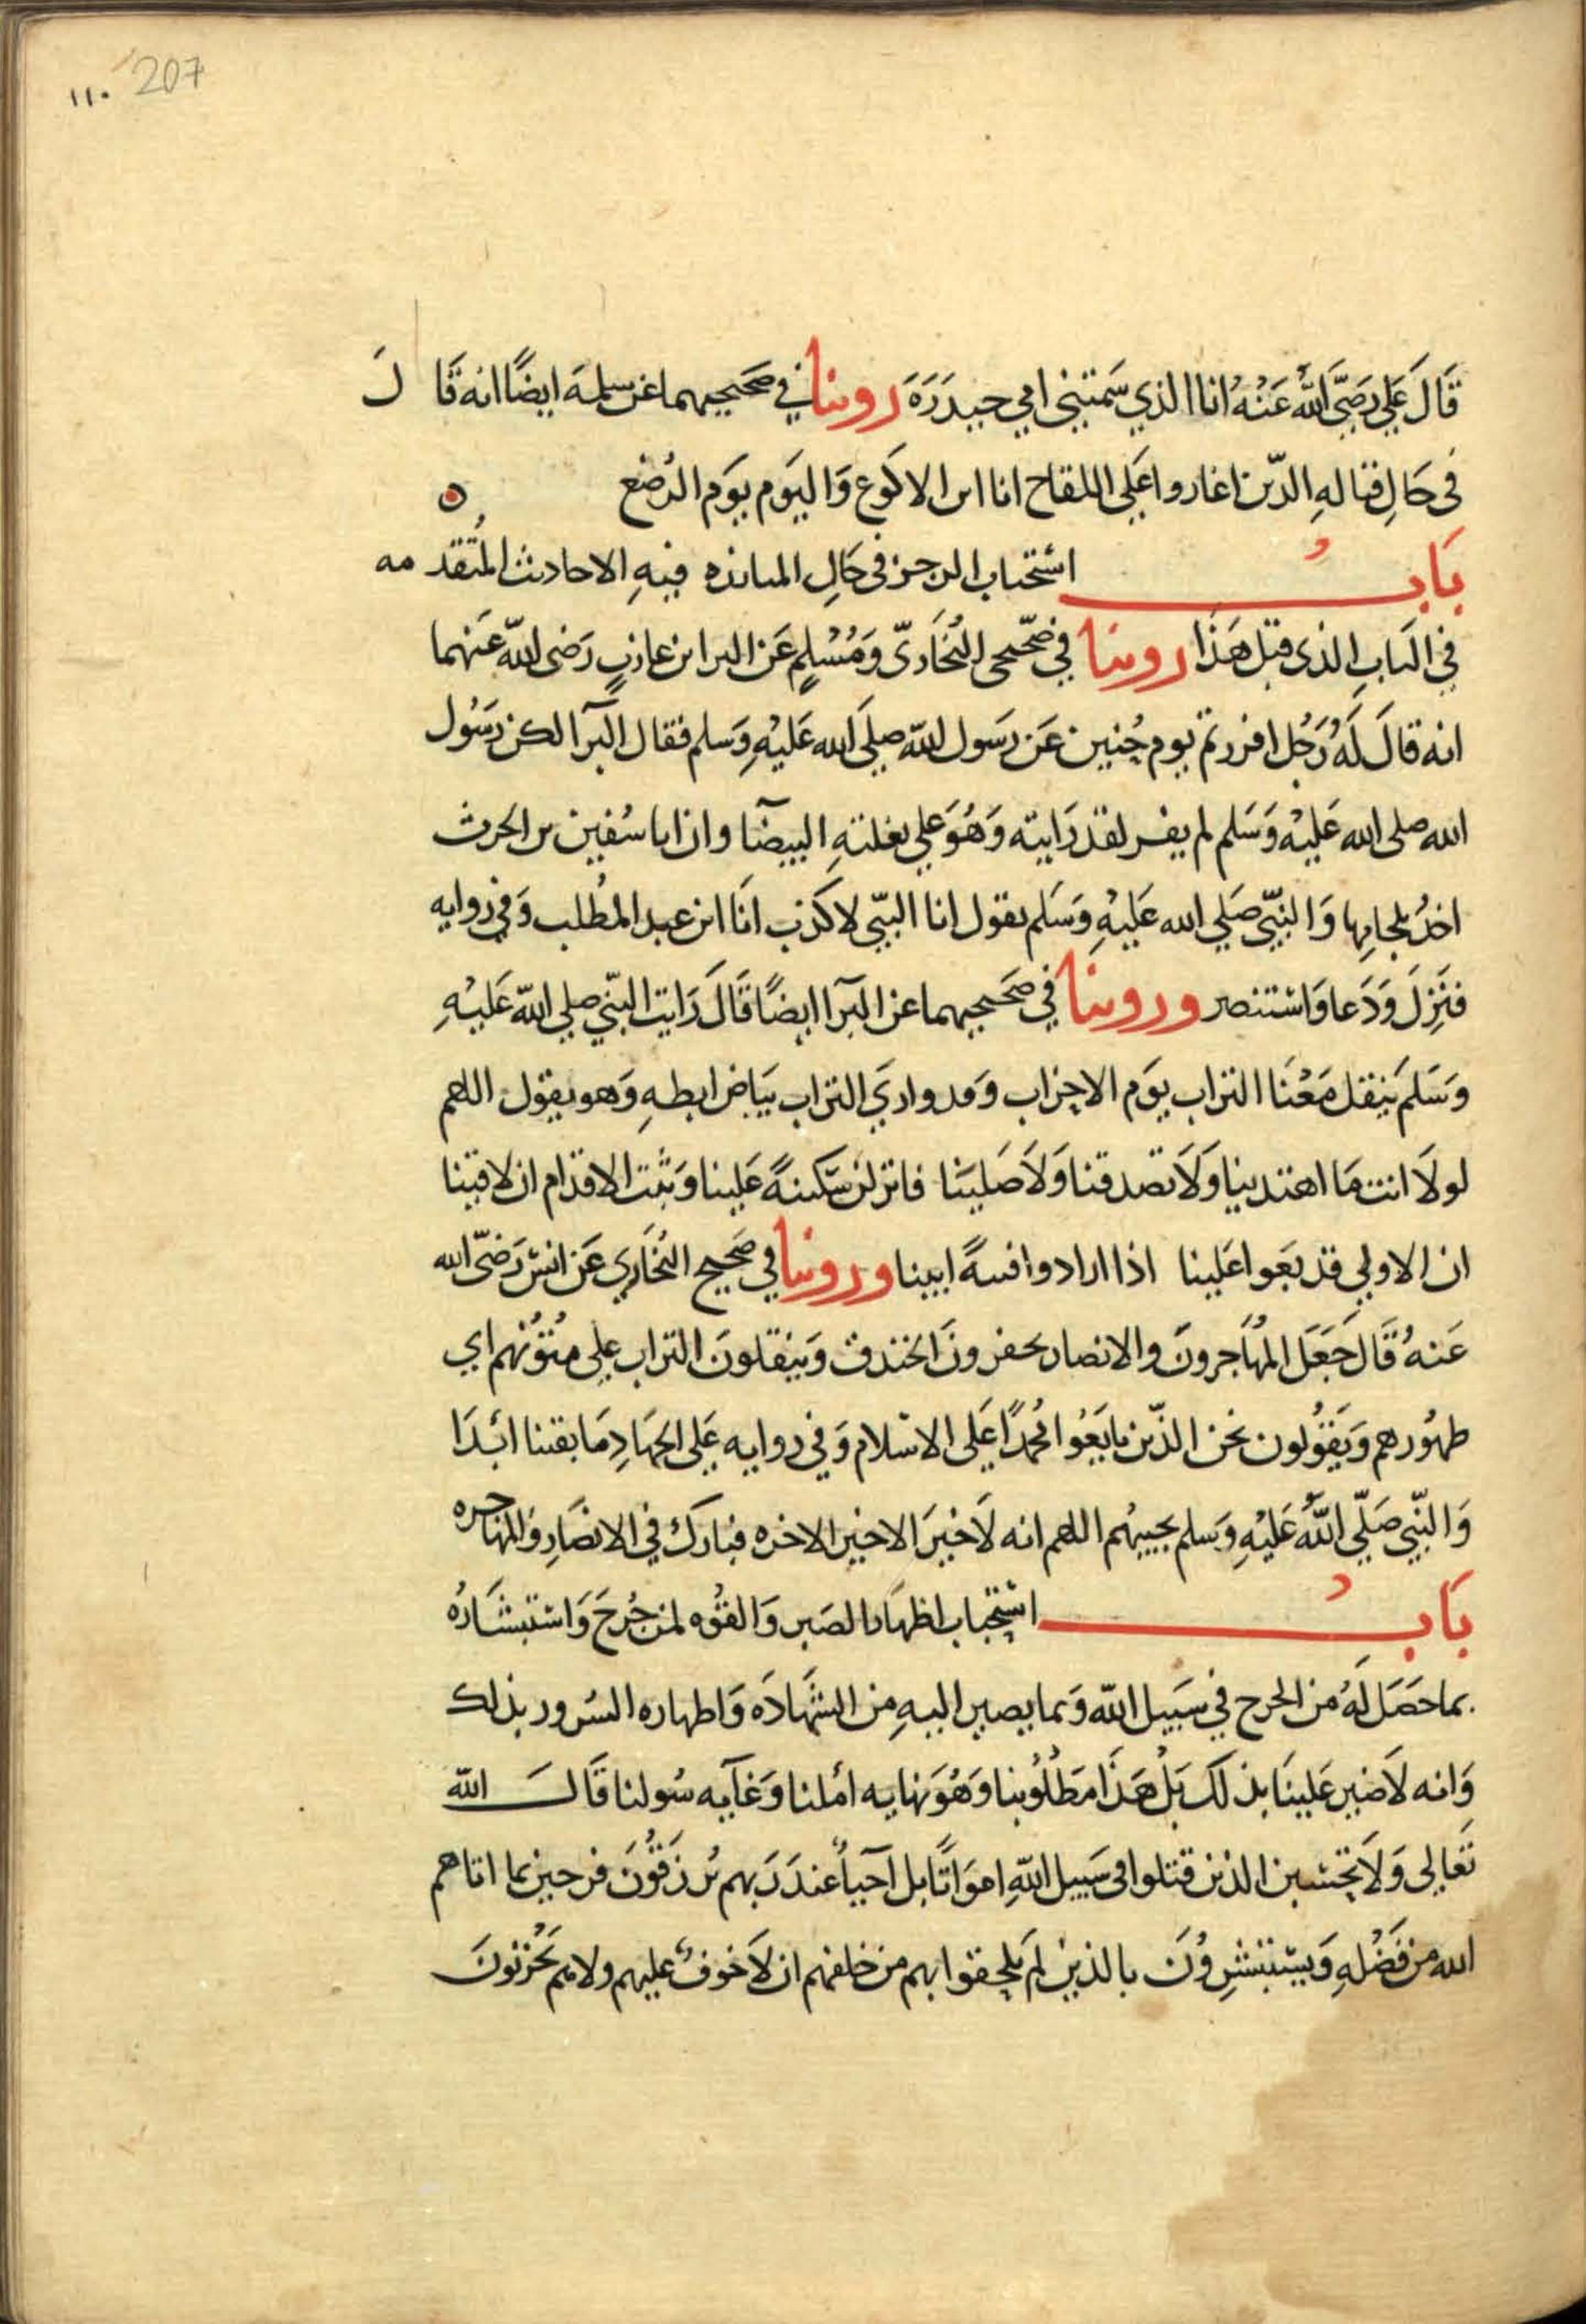 ١١٠ 207
قَالَ عَلي رَضيَّ اللهُ عَنْهُ انا الذي سَمتني امي حيدَرَهَ روينا في صَحيحيهما عن سلمهَ ايضًا انه قَا لَ
في حَالِ قتالهِ الذّين اغاروا عَلي اللقاح انا ابن الاكوع وَاليَوم يوَم الرُضع
بَابُ استحباب الرجز في حَالِ المبارزه فيهِ الاحاديث المُتقد مه
في البَابِ الذي قبل هَذا روينا في صَحيحي البُخَاريّ وَمُسْلِم عَن البرا بن عازبٍ رَضي اللهّ عَنهما
انه قالَ لَهُ رَجُل افررتم يوم حُنين عَن رسَول اللهّ صلي اَلله عَليْهِ وَسَلم فقال البَرآ لكن رسَوُل
الله صلى الله عَليْه وَسَلم لم يفر لقد رَايته وَهُوَ علي بغلتهِ البيضآ وان ابا سُفين بن الحرث
اخذُ بلجامِها وَالنبيّ صَلي الله عَليهِ وَسَلم يقول انا النبّي لا كذب انَا ابن عبد المُطلب وَفي روايه
فنَزلَ وَدَعا وَاستنصر وروينا في صَحَيحيهما عن البَرآ ايضًا قَالَ رَايت النبّي صلي اللهّ عَليْهِ
وَسَلمَ ينقل مَعْنَا التراب يوَم الاحزاب وَقد واريَ التراب بيَاض ابطهِ وَهو يقول اللهم
لولَا انت مَا اهتدينا وَلَا تصدقنا وَلَا صَليَنا فانزلن سَكينةً عَلينا وَثبت الاقدام ان لاقينا
ان الاولي قد بغَوا عَلينا اذا ارادوا فتنهً ابينا وروينا في صَحيح البُخَاري عَن انسْ رَضيّ الله
عَنهُ قَالَ جَعَل المُهَاجرونَ والانصار يحفرونَ الخندق وَينقلونَ التراب علي مُتوُنهم اي
ظهُورهم وَيَقوُلون نحن الذّين بايَعُوا محُمدًا عَلى الاسْلام وَفي روايه عَلي الجهَادِ مَا بقينا ابَدَا
وَالنبّي صَليّ اللهُ عَليْهِ وَسَلم يجيبهُم اللهم انه لَا خَيرَ الا خير الاخره فبَارك في الانصَارِ وَالمهاجره
بَابُ استحباب اظهَار الصَبر وَالقوُه لمن جُرحَ وَاستبشَارُه
بما حَصَل لَهُ من الجرح في سَبيل اللهّ وَبما يصير اليهِ من الشهَادَه وَاظهاره السُرور بذلك
وَانه لَا ضير عَلينَا بذلكَ بَلْ هَذَا مَطلُوُبنا وَهُوَ نهايه امْلنا وَغَآيه سُولنا قَالَ اللهّ
تعَالي وَلَا تحسَبن الذين قتلوا في سَبيل اللّهِ اموَاتًا بل آحيآٌ عندَ رَبهم يُرزَقوُنَ فرحين بما اتاهم
الله من فَضْلهِ وَيستبشِروُنَ بالذين لَم يلحقوا بهم من خلفهم ان لَا خوفٌ عليهم ولا هم يَحُزنونَ